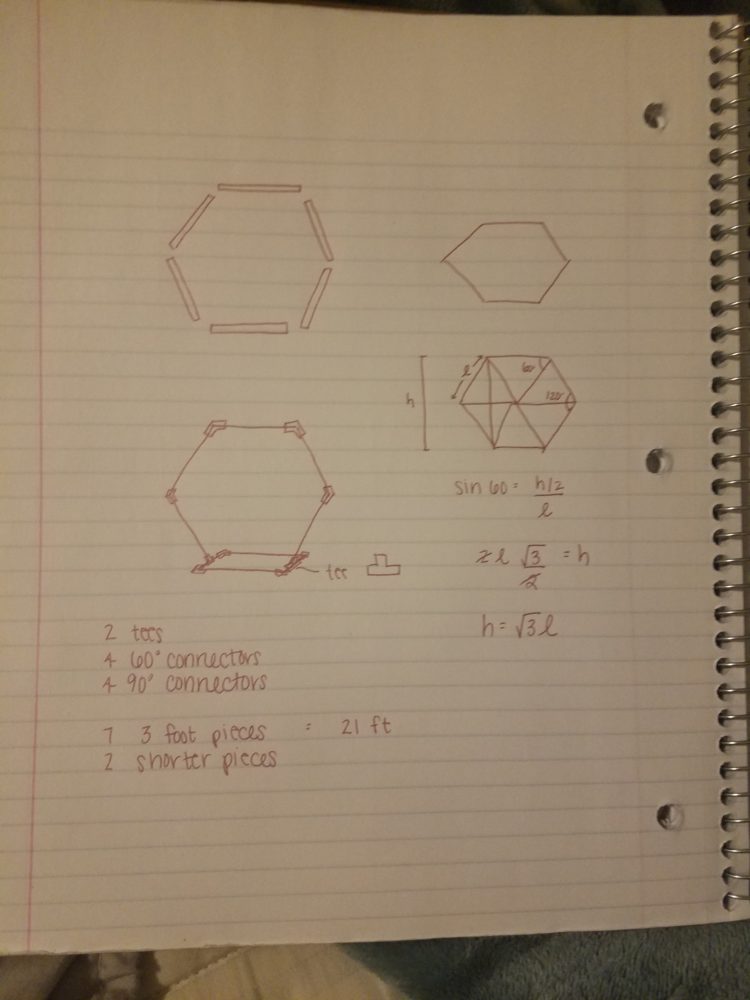 l
60°
h
120°
sin 60 = h/2 / l
2l √3/2 = h
tee
h = √3l
2 tees
4 60° connectors
4 90° connectors
7 3 foot pieces = 21 ft
2 shorter pieces